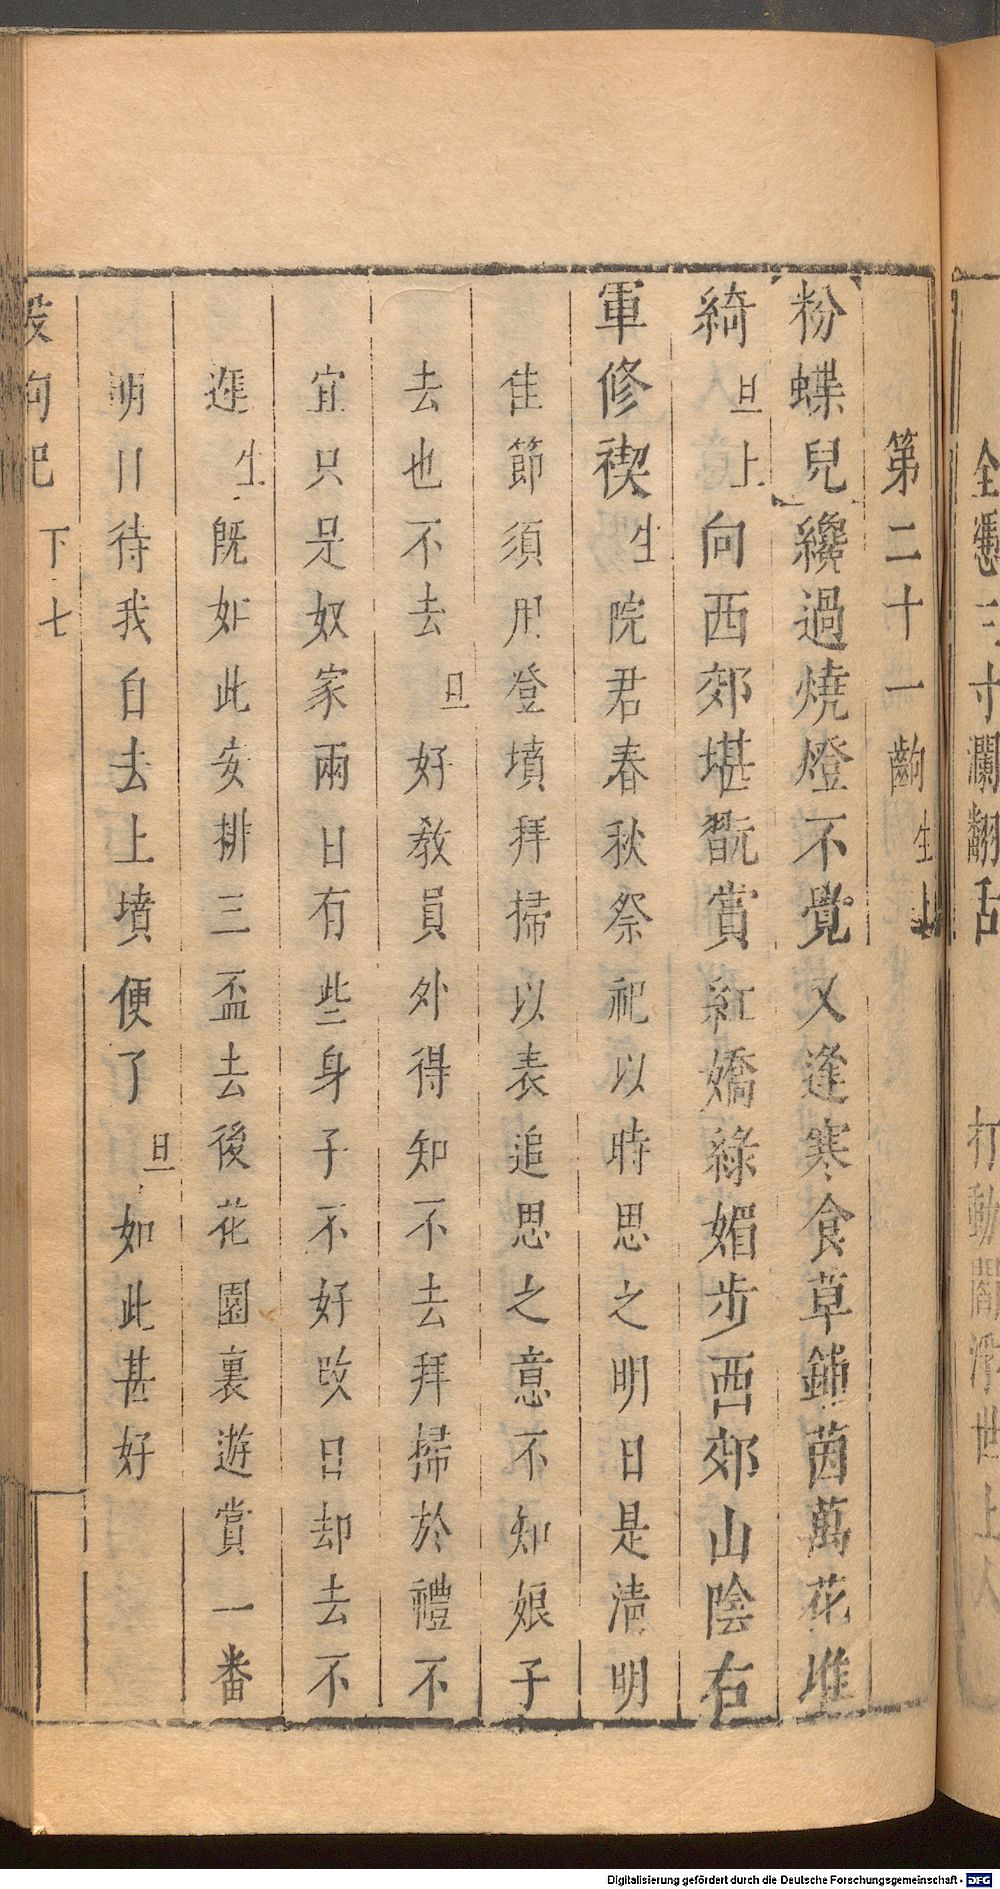 全 三寸瀾翻舌 打動閻浮世上人
第二十一齣生上
粉蝶兒纔過燒燈不覺又逢寒食草鋪茵萬花堆
綺旦上向西郊堪翫賞紅嬌綠媚步西郊山陰右
軍修禊生院君春秋祭祀以時思之明日是清明
佳節須用登墳拜掃以表追思之意不知娘子
去也不去旦好教員外得知不去拜掃於禮不
宜只是奴家兩日有些身子不好改日却去不
遲生既如此安排三盃去後花園裏遊賞一番
明日待我自去上墳便了旦如此甚好
殺狗記 下 七
Digitalisierung gefördert durch die Deutsche Forschungsgemeinschaft - DFG